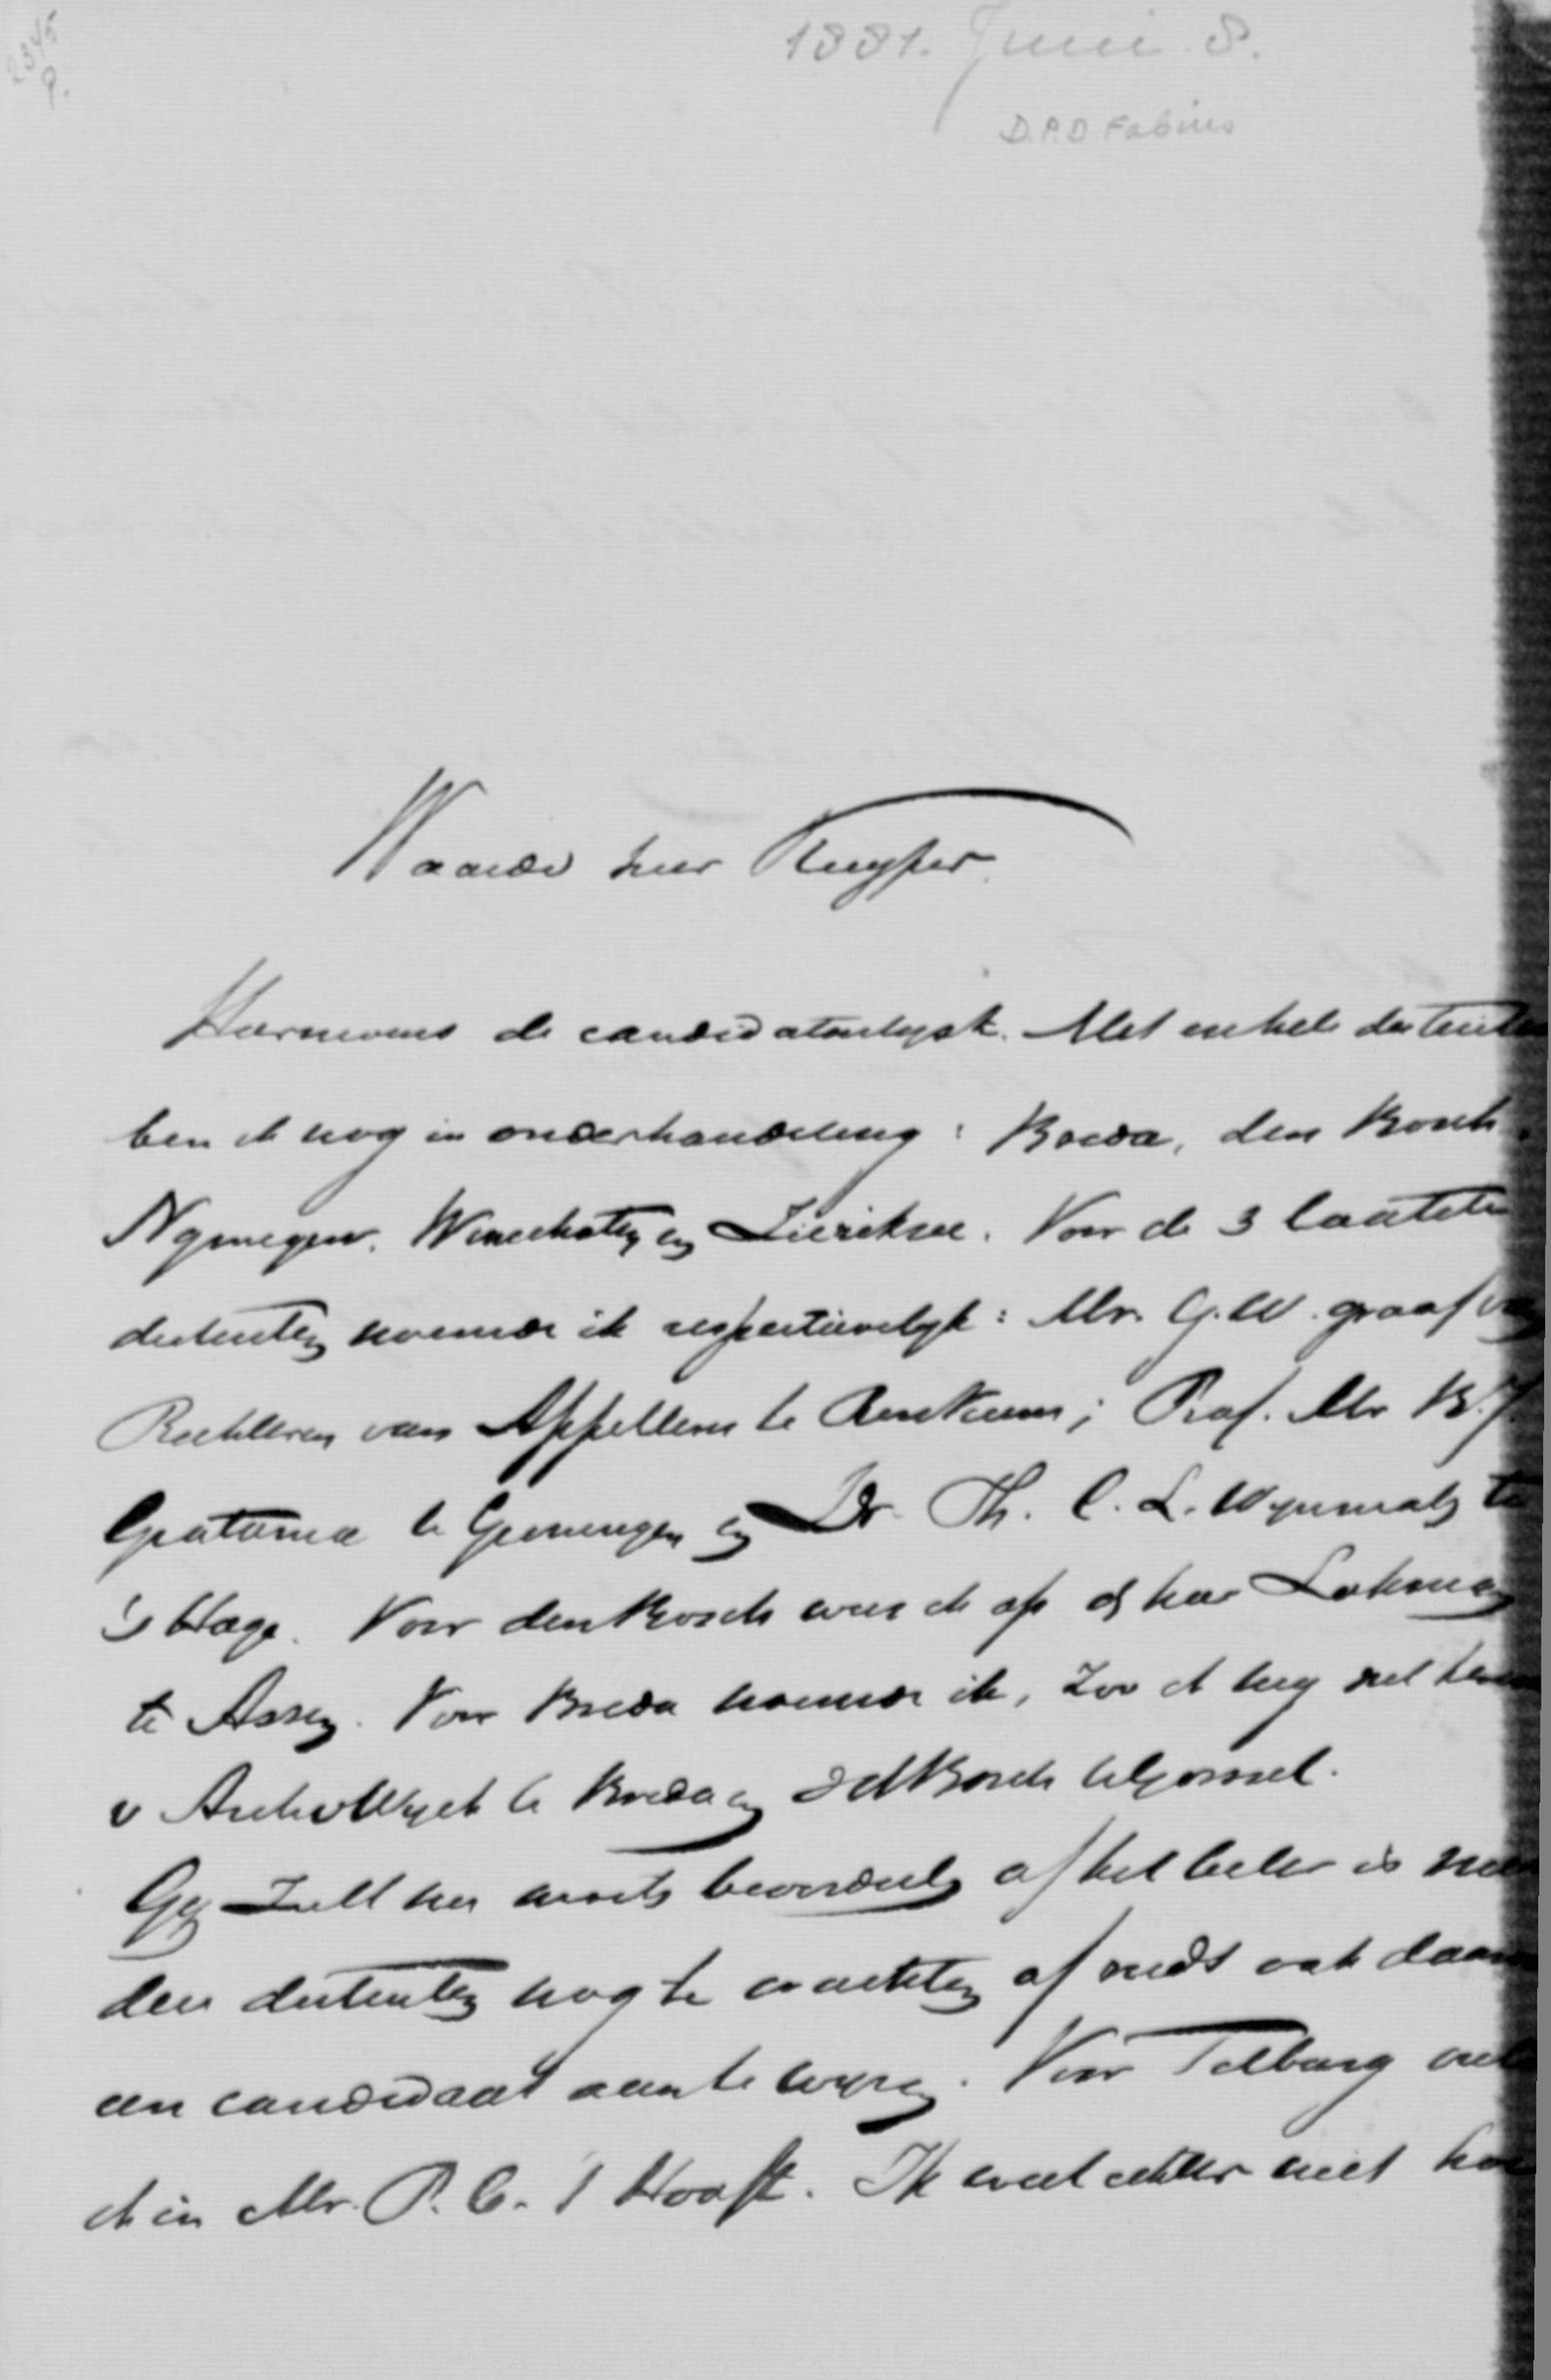 2345
9.
1881. Juni 8.
D.P.D. Fabius
Waarde heer Kuyper
Hiernevens de candidatenlyst. Met enkele districten
ben ik nog in onderhandeling: Breda, den Bosch,
Nymegen, Winschoten en Zierikzee. Voor de 3 laatste
districten noemde ik respectievelyk: Mr. G.W. graaf van
Rechteren van Appeltern te Renkum; Prof. Mr B.J.
Gratama te Groningen en Dr. Th. C. L. Wynmalen te
's Hage. Voor den Bosch wees ik op Lohman
te Assen. Voor Breda noemde ik, zoo ik my niet
v te Breda en Bosch te Gorssel.
Gy zult het best beoordeelen of het beter is
den districten nog te wachten of reeds ook daar
een candidaat aan te wyzen. Voor Tilburg
ik in Mr. P. C. 't Hooft. Ik weet echter niet